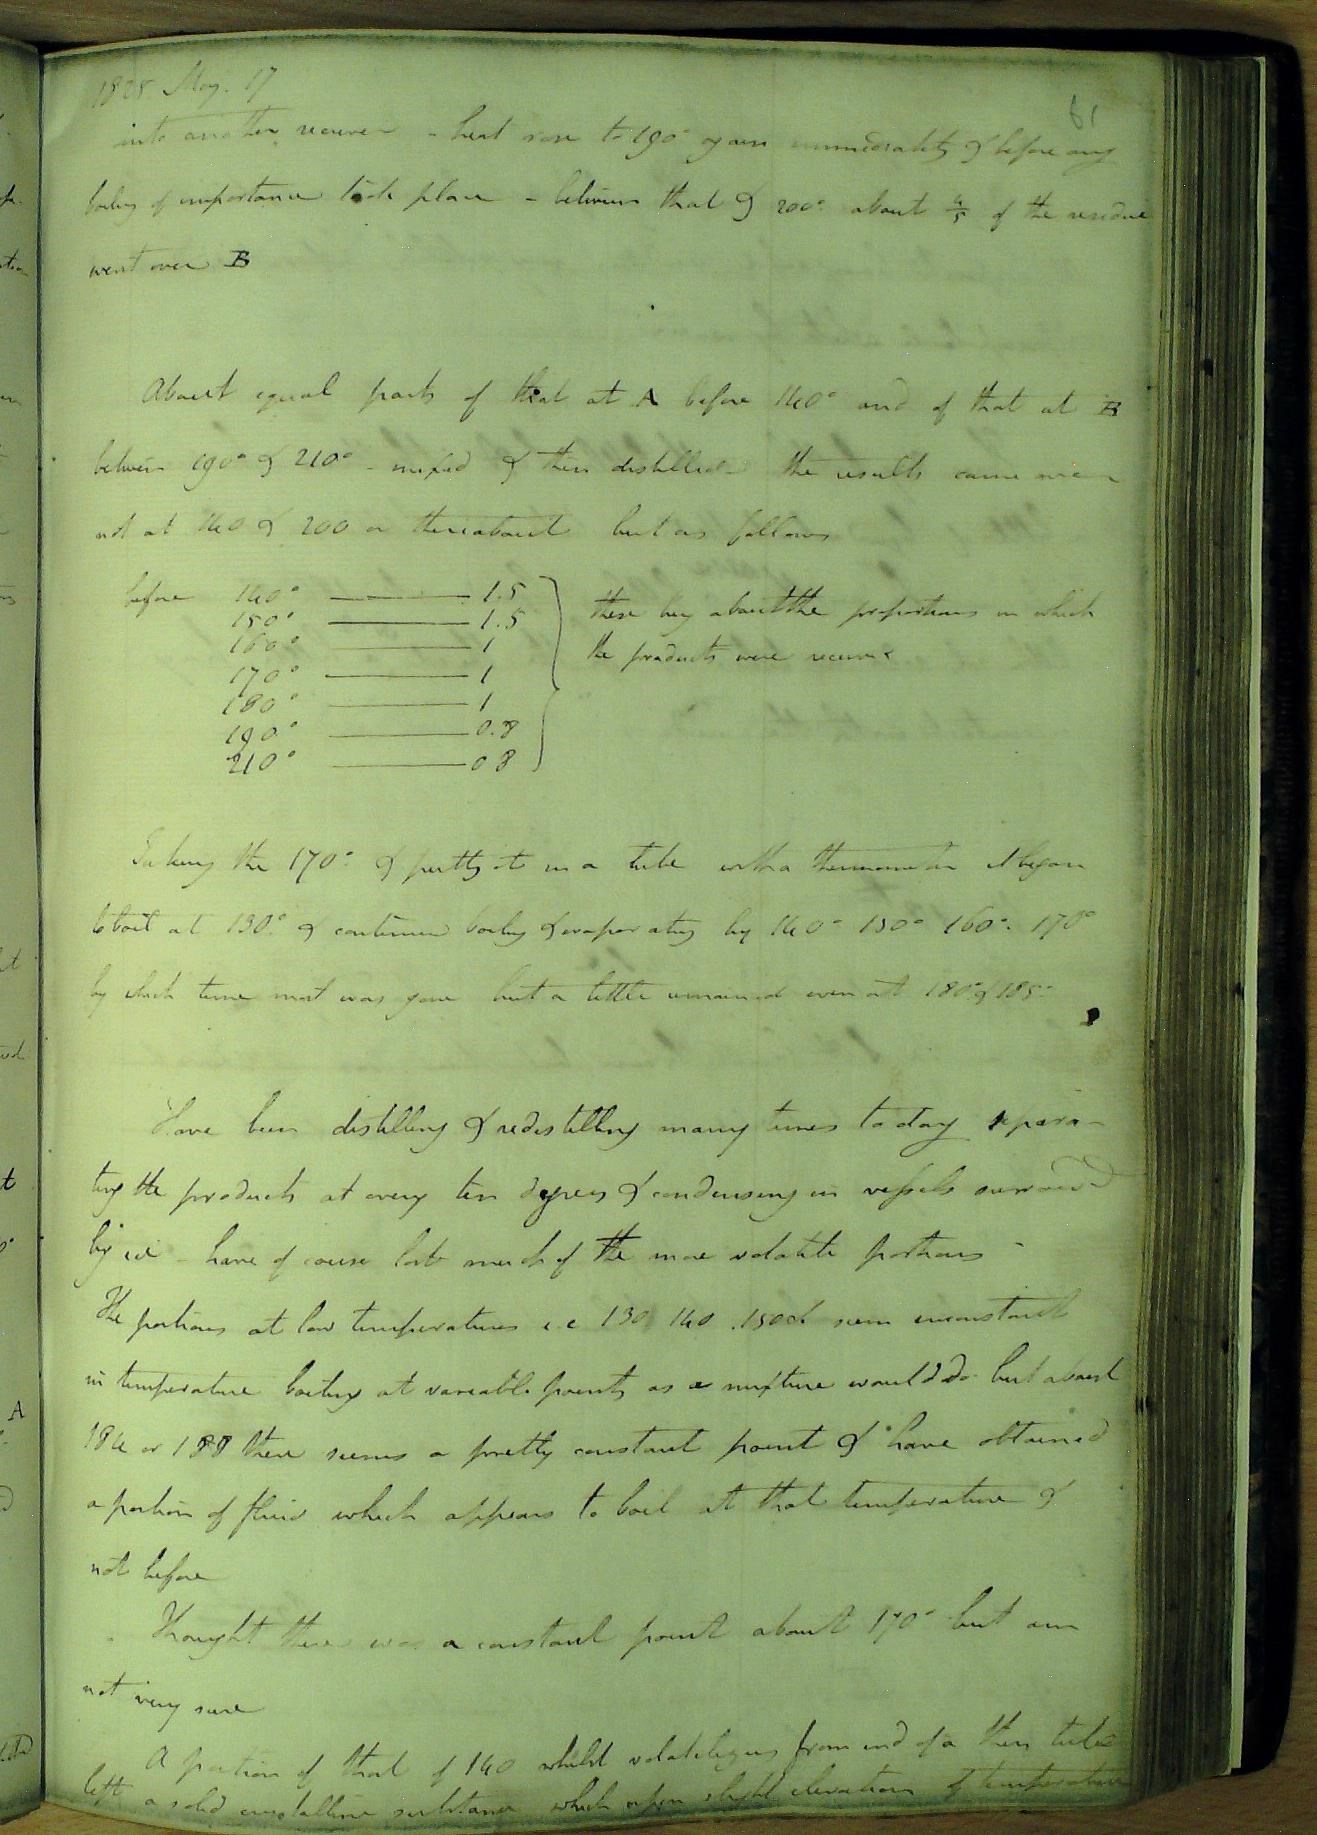 1825 May. 17
61
into another receiver - heat rose to 190° again immediately & before any
boiling of importance took place - between that & 200° about 4/5 of the residue
went over B
About equal parts of that at A before 140° and of that at B
between 190° & 210° - mixed & then distilled - the results came over
not at 140 & 200 or thereabout but as follows
before 140° ——— 1.5
150° ——— 1.5
160° ——— 1
170° ——— 1
180° ——— 1
190° ——— 0.8
210° ——— 0 8
these being about the proportions in which
the products were received
Taking the 170° & putting it in a tube with a thermometer it began
to boil at 130° & continued boiling & evaporating by 140° 150° 160° 170°
by which time most was gone but a little remained even at 180° & 185°
Have been distilling & redistilling many times to day separa-
ting the products at every ten degrees & condensing in vessels surround
by ice - have of course lost much of the more volatile portions -
The portions at low temperatures i.e 130 140 .150 &c seem inconstant
in temperature boiling at variable points as a mixture would do but about
184 or 188 there seems a pretty constant point & have obtained
a portion of fluid which appears to boil at that temperature &
not before
Thought there was a constant point about 170° but am
not very sure
A portion of that of 140 whilst volatilizing from end of a thin tube
left a solid crystalline substance which upon slight elevation of temperature